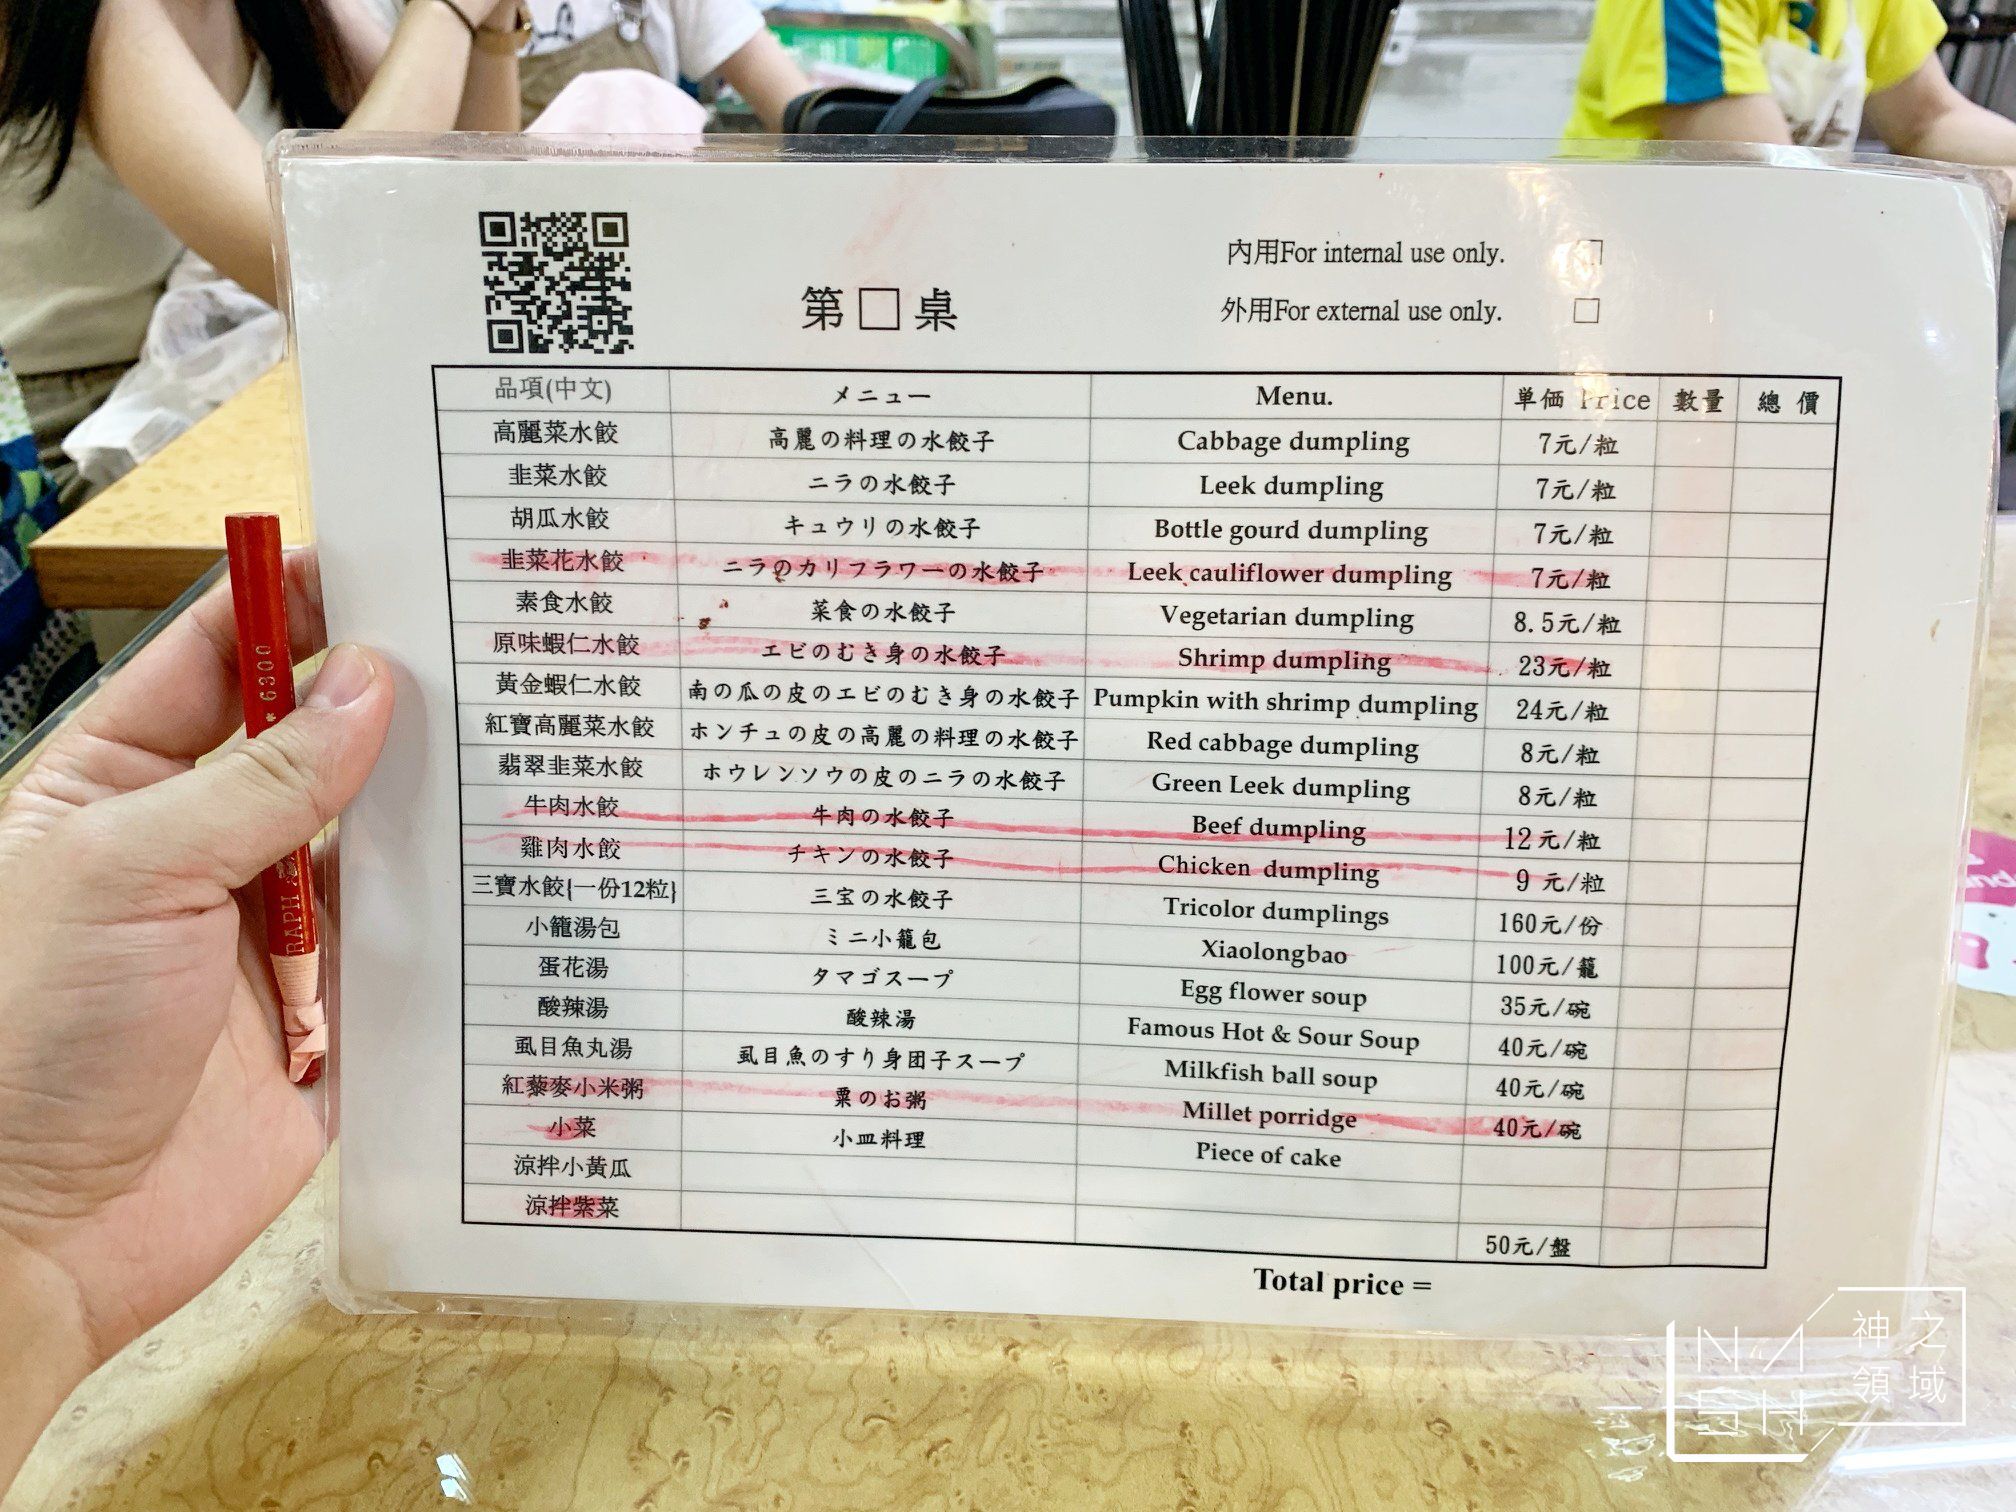 內用For internal use only. □
第□桌
外用For external use only. □
品項(中文) メニュー Menu. 単価 Price 數量 總 價
高麗菜水餃 高麗の料理の水餃子 Cabbage dumpling 7元/粒
韭菜水餃 ニラの水餃子 Leek dumpling 7元/粒
胡瓜水餃 キュウリの水餃子 Bottle gourd dumpling 7元/粒
韭菜花水餃 ニラのカリフラワーの水餃子 Leek cauliflower dumpling 7元/粒
素食水餃 菜食の水餃子 Vegetarian dumpling 8.5元/粒
原味蝦仁水餃 エビのむき身の水餃子 Shrimp dumpling 23元/粒
黃金蝦仁水餃 南の瓜の皮のエビのむき身の水餃子 Pumpkin with shrimp dumpling 24元/粒
紅寶高麗菜水餃 ホンチュの皮の高麗の料理の水餃子 Red cabbage dumpling 8元/粒
翡翠韭菜水餃 ホウレンソウの皮のニラの水餃子 Green Leek dumpling 8元/粒
牛肉水餃 牛肉の水餃子 Beef dumpling 12元/粒
雞肉水餃 チキンの水餃子 Chicken dumpling 9 元/粒
三寶水餃{一份12粒} 三宝の水餃子 Tricolor dumplings 160元/份
小籠湯包 ミニ小籠包 Xiaolongbao 100元/籠
蛋花湯 タマゴスープ Egg flower soup 35元/碗
酸辣湯 酸辣湯 Famous Hot & Sour Soup 40元/碗
虱目魚丸湯 虱目魚のすり身団子スープ Milkfish ball soup 40元/碗
紅藜麥小米粥 粟のお粥 Millet porridge 40元/碗
小菜 小皿料理 Piece of cake
涼拌小黃瓜
涼拌紫菜 50元/盤
Total price =
* 6300
RAPH
NASH
神之
領域